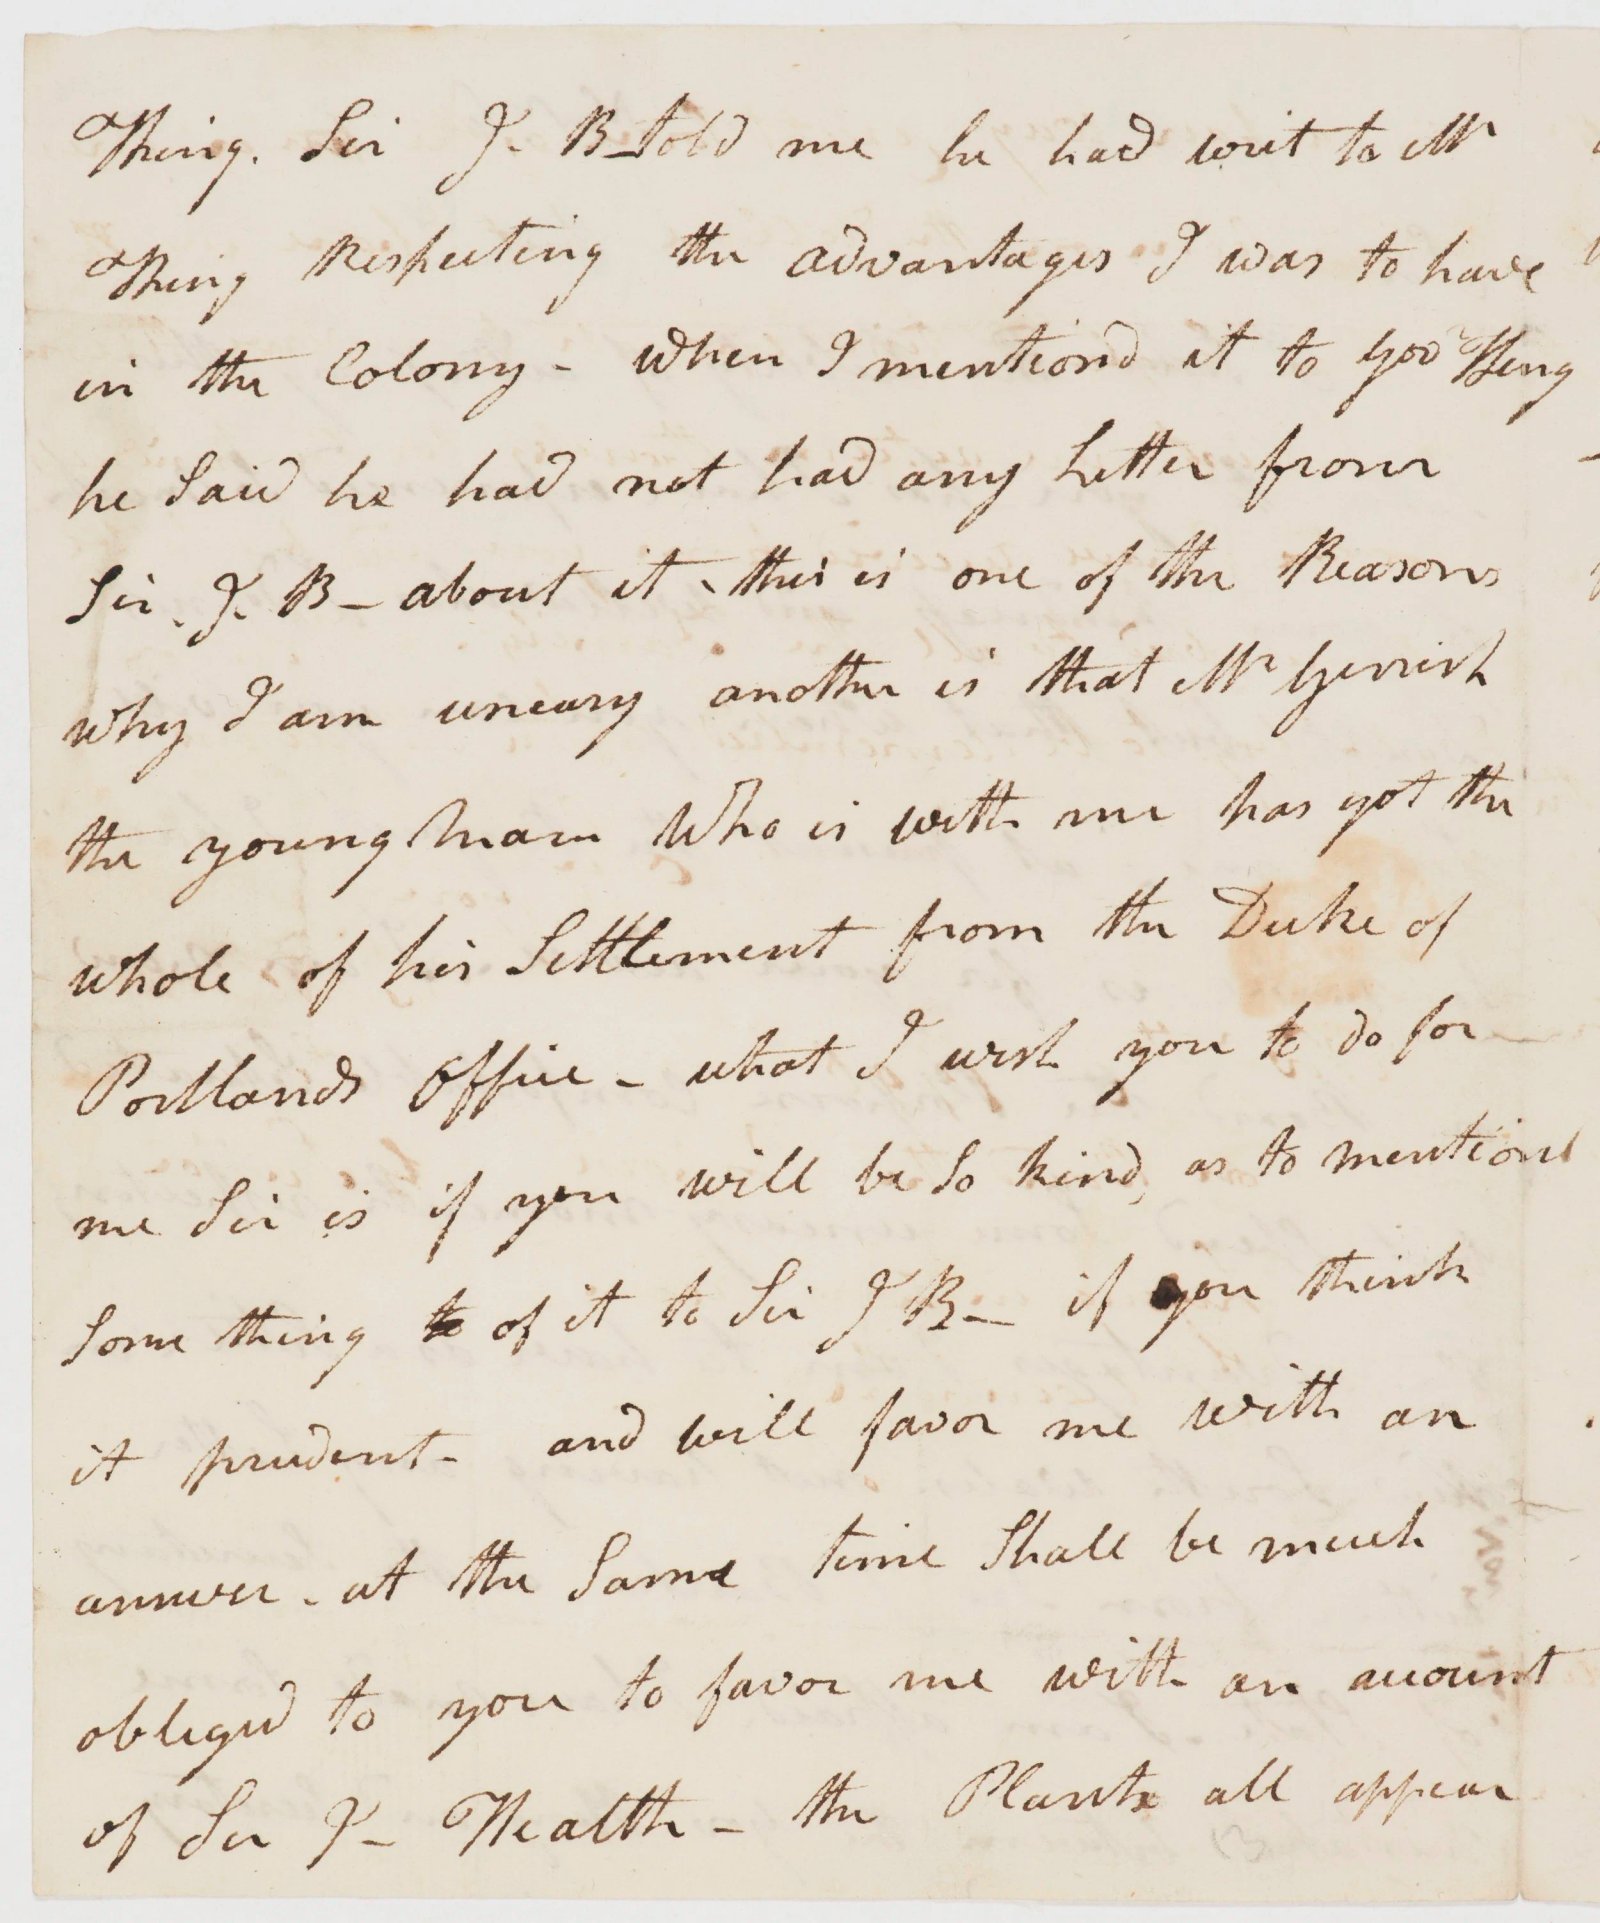 Thing. Sir J. B– told me he had writ to Mr
King Respecting the advantages I was to have
in the Colony - when I mentiond it to Govr King
he Said he had not had any Letter from
Sir. J. B– about it - this is one of the Reasons
why I am uneasy another is that Mr Gerrish
the young Man Who is with me has got the
whole of his Settlement from the Duke of
Portlands Office - what I wish you to do for
me Sir is if you will be So kind, as to mention
Some thing to of it to Sir J B– if you think
it prudent - and will favor me with an
answer - at the Same time Shall be much
obliged to you to favor me with an account
of Sir J– Health - the Plants all appear